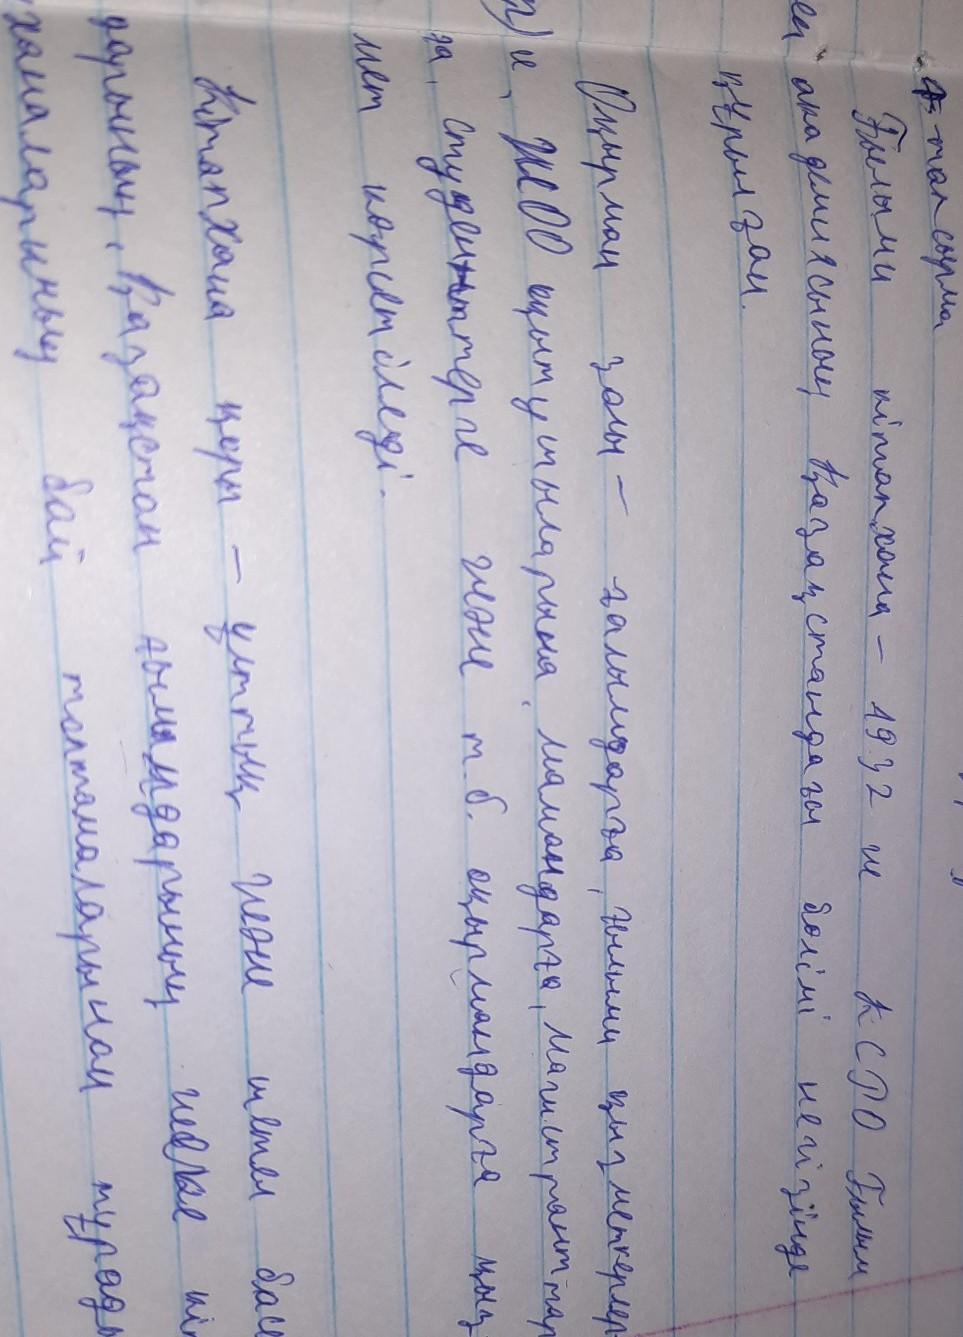 4-тапсырма
Ғылыми кітапхана – 1932 ж КСРО Ғылым
академиясының Қазақстандағы бөлімі негізінде
құрылған.
Оқырман залы – ғалымдарға, ғылыми қызметкерлер-
ге, ЖОО оқытушыларына, мамандарға, магистранттар
ға, студенттерге және т.б. оқырмандарға қыз
мет көрсетіледі.
Кітапхана қоры – ұлттық және шетел басы
ларының, Қазақстан ғалымдарының жеке кіт
ханаларының бай топтамаларынан тұрады